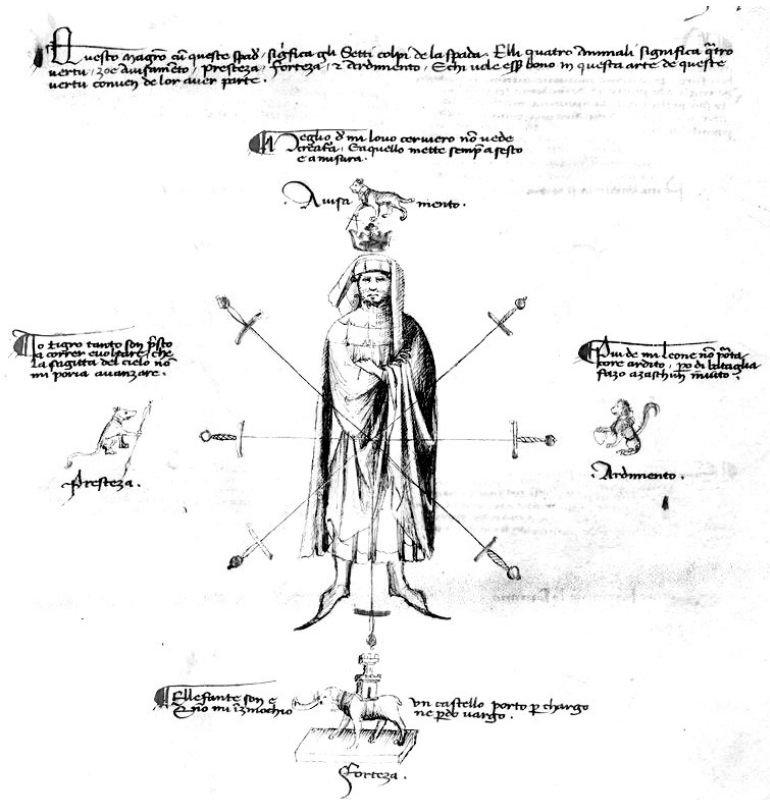 Questo magro cu queste spad / sigfica gli Setti colpi de la spada . Elli quatro animali significa qtro
vertu / zoe avisameto / presteza / forteza / 2 ardimento / E chi vole ess bono in questa arte de queste
vertu conven de lor aver parte .
Meglio d mi lovo cerviero no vede
creatura / E aquello mette semp a sesto
e a misura .
Avisa mento .
Io tigro tanto son psto
a correr e voltare / che
la sagitta del cielo no
mi poria avanzare .
Presteza .
Piu de mi leone no pota
core ardito / po di bataglia
fazo a zaschun invito .
Ardimento .
Ellefante son e un castello porto p chargo
E no mi izinochio ne pdo vargo .
Forteza .